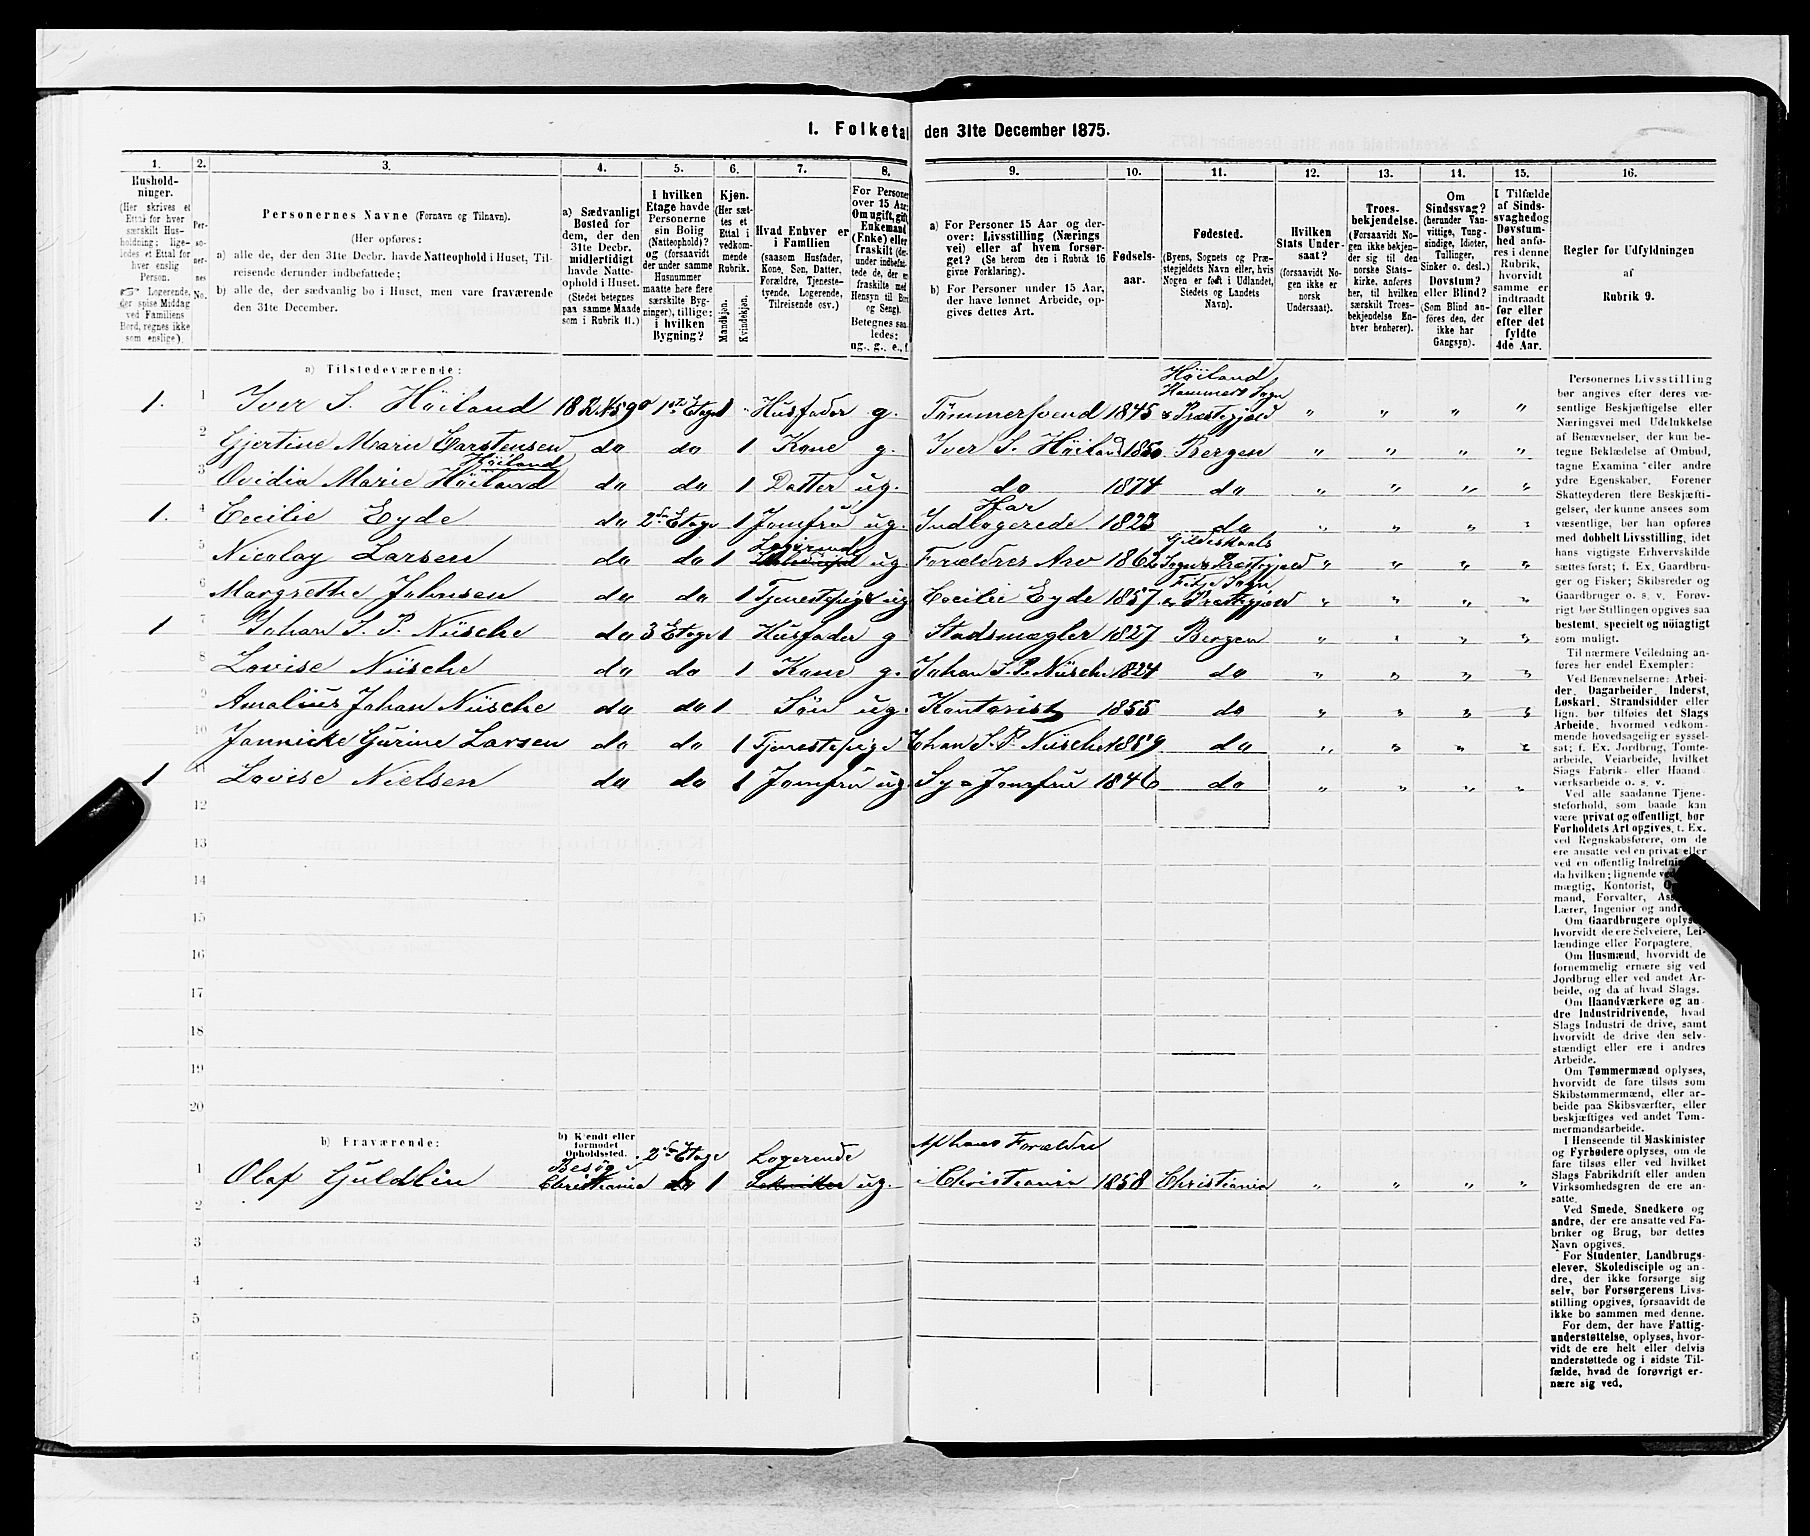 1. Folketal den 31te December 1875.
1. 2. 3. 4. 5. 6. 7. 8. 9. 10. 11. 12. 13. 14. 15. 16.
Husholdninger.
(Her skrives et
Ettal for hver
særskilt Husholdning;
ligeledes et Ettal for
hver enslig
Person.
Logerende,
der spise Middag
ved Familiens
Bord, regnes ikke
som enslige).
Personernes No.
Personernes Navne (Fornavn og Tilnavn).
(Her opføres:
a) alle de, der den 31te Decbr. havde Natteophold i Huset, Tilreisende derunder indbefattede;
b) alle de, der sædvanlig bo i Huset, men vare fraværende
den 31te December.
a) Sædvanligt
Bosted for
dem, der den
31te Decbr.
midlertidigt
havde Natteophold i Huset.
(Stedet betegnes
paa samme Maade
som i Rubrik 11.)
I hvilken
Etage havde
Personerne
sin Bolig
(Natteophold)?
og (forsaavidt
der under samme
Husnummer
maatte høre flere
særskilte Bygninger), tillige:
i hvilken
Bygning?
Kjøn.
(Her sættes et
Ettal i
vedkommende
Rubrik.
Mandkjøn.
Kvindekjøn.
Hvad Enhver er
i Familien
(saasom Husfader,
Kone, Søn, Datter,
Forældre, Tjenestetyende, Logerende,
Tilreisende osv.)
For Personer
over 15 Aar:
Om ugift, gift,
Enkemand
(Enke) eller
fraskilt
Betegnes saaledes:
ug., g., e., f.
a) For Personer 15 Aar og derover: Livsstilling (Næringsvei) eller af hvem forsørget? (Se herom den i Rubrik 16
givne Forklaring).
b) For Personer under 15 Aar,
der have lønnet Arbeide, opgives dettes Art.
Fødselsaar.
Fødested.
(Byens, Sognets og Præstegjeldets Navn eller, hvis
Nogen er født i Udlandet,
Stedets og Landets
Navn).
Hvilken
Stats Undersaat?
(forsaavidt Nogen ikke er
norsk
Undersaat).
Troesbekjendelse.
(Forsaavidt Nogen ikke bekjender sig til den
norske Statskirke, anføres
her, til hvilken
særskilt Troesbekjendelse Enhver henhører).
Om
Sindssvag?
(herunder Vanvittige, Tungsindige, Idioter,
Tullinger,
Sinker o. desl.)
Døvstum?
eller Blind?
(Som Blind anføres den, der
ikke har
Gangsyn).
I Tilfælde
af Sindssvaghed og
Døvstumhed anføres i denne
Rubrik,
hvorvidt
samme er
indtraadt
før eller
efter det
fyldte
4de Aar.
Regler for Udfyldningen
af
Rubrik 9.
a) Tilstedeværende:
Høiland
Hammers Sogn
1. 1 Iver S. Høiland 182 N590 1ste Etage 1 Husfader g. Tømmersvend 1845 & Præstegjeld " " " "
2 Gjertine Marie Carstensen Høiland do do 1 Kone g. Iver S. Høiland 1850 Bergen " " " "
3 Ovidia Marie Høiland do do 1 Datter ug. do 1874 do " " " "
1. 4 Cecilie Eyde do 2den Etage 1 Jomfru ug. Har Indlogerede 1823 do " " "
5 Nicolay Larsen do do 1 Logerende ug. Forældres Arv 1862 Gildeskaals Sogn & Præstegjeld " " " "
6 Margrethe Johnsen do do 1 Tjenestepige ug Cecilie Eyde 1857 Fitje Sogn & Præstegjeld " " " "
1 7 Johan S. P. Nüsche do 3 Etage 1 Husfader g Stadsmægler 1827 Bergen " " " "
8 Lovise Nüsche do do 1 Kone g. Johan S. P. Nüsche 1824 do " " " "
9 Amalius Johan Nüsche do do 1 Søn ug. Kontorist 1855 do " " " "
10 Jannicke Gurine Larsen do do 1 Tjenestepige Johan S. P. Nüsche 1859 do " " " "
1 11 Lovise Nielsen do do 1 Jomfru ug. Sy Jomfru 1846 do " " " "
12
13
14
15
16
17
18
19
20
b) Fraværende:
b) Kjendt eller
formodet
Opholdssted.
1 Olaf Guldlin Besøg i Christiania 2den Etage do 1 Logerende ug. Af hans Forældre i Christiania 1858 Christiania " " " "
2
3
4
5
6
Personernes Livsstilling
bør angives efter deres væsentlige Beskjæftigelse eller
Næringsvei med Udelukkelse
af Benævnelser, der kun betegne Beklædelse af Ombud,
tagne Examina eller andre
ydre Egenskaber. Forener
Skatteyderen flere Beskjæftigelser, der kunne ansees som
væsentlige, bør han opføres
med dobbelt Livsstilling, idet
hans vigtigste Erhvervskilde
sættes først; f. Ex. Gaardbruger og Fisker; Skibsreder og
Gaardbruger o. s. v. Forøvrigt bør Stillingen opgives saa
bestemt, specielt og nøiagtigt
som muligt.
Til nærmere Veiledning anføres her endel Exempler:
Ved Benævnelserne: Arbeider, Dagarbeider, Inderst,
Løskarl, Strandsidder eller
lign. bør tilføies det Slags
Arbeide, hvormed vedkommende hovedsagelig er sysselsat; f. Ex. Jordbrug, Tomtearbeide, Veiarbeide, hvilket
Slags Fabrik- eller Haandværksarbeide o. s. v.
Ved alle saadanne Tjenesteforhold, som baade kan
være privat og offentligt, bør
Forholdets Art opgives, t. Ex.
ved Regnskabsførere, om de
ere ansatte ved en privat eller
ved en offentlig Indretning
da hvilken; lignende ved
mægtig, Kontorist,
mand, Forvalter,
Lærer, Ingeniør og andre
Om Gaardbrugere oplyses,
hvorvidt de ere Selveiere, Leilændinge eller Forpagtere.
Om Husmænd, hvorvidt de
fornemmelig ernære sig ved
Jordbrug eller ved andet Arbeide, og da af hvad Slags.
Om Haandværkere og andre Industridrivende, hvad
Slags Industri de drive, samt
hvorvidt de drive den selvstændigt eller ere i andres
Arbeide.
Om Tømmermænd oplyses,
hvorvidt de fare tilsøs som
Skibstømmermænd, eller arbeide paa Skibsværfter, eller
beskjæftiges ved andet Tømmermandsarbeide.
I Henseende til Maskinister
og Fyrbødere oplyses, om de
fare tilsøs eller ved hvilket
Slags Fabrikdrift eller anden
Virksomhedsgren de ere ansatte.
Ved Smede, Snedkere og
andre, der ere ansatte ved Fabriker og Brug, bør dettes
Navn opgives.
For Studenter, Landbrugselever, Skoledisciple og andre, der ikke forsørge sig
selv, bør Forsørgerens Livsstilling opgives, forsaavidt de
ikke bo sammen med denne.
For dem, der have Fattigunderstøttelse, oplyses, hvorvidt de ere helt eller delvis
understøttede og i sidste Tilfælde, hvad de forøvrigt ernære sig ved.